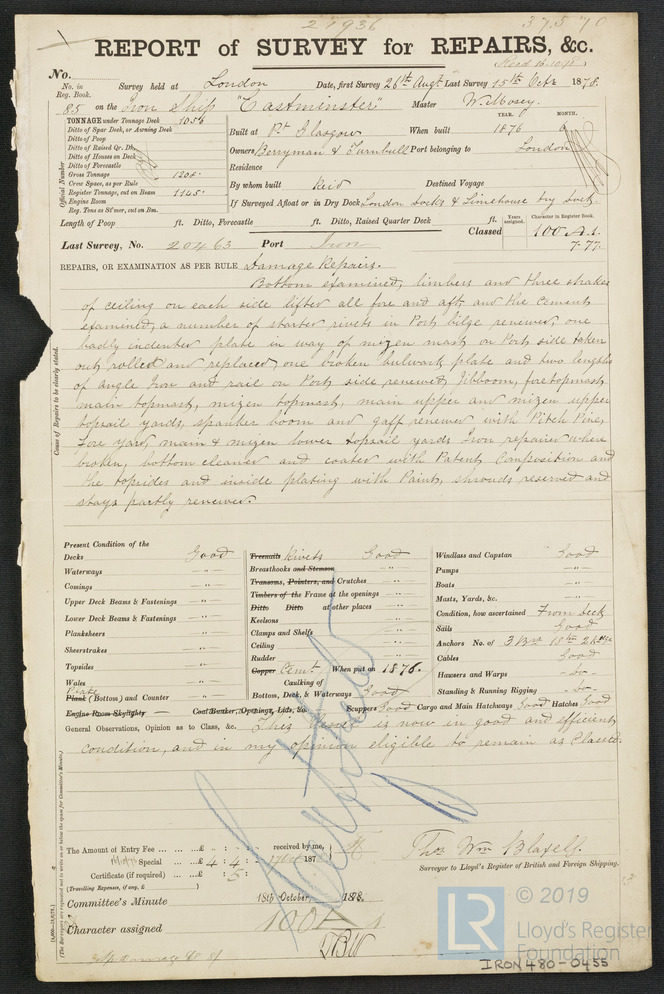 REPORT of SURVEY for REPAIRS, &c.
No.
No. in Reg. Book. Survey held at London Date, first Survey 26th Augt Last Survey 15th Octr 1878.
85 on the Iron Ship "Eastminster" Master W. Mosey.
TONNAGE under Tonnage Deck 1056
Ditto of Spar Deck, or Awning Deck
Ditto of Poop
Ditto of Raised Qr. Dk.
Ditto of Houses on Deck
Ditto of Forecastle
Gross Tonnage
Crew Space, as per Rule
Register Tonnage, cut on Beam 1145.
Engine Room
Reg. Tons as St'mer, cut on Bm.
Official Number
YEAR. MONTH.
Built at Pt Glasgow When built 1876
Owners Berryman & Turnbull Port belonging to London
Residence
By whom built Reid Destined Voyage
If Surveyed Afloat or in Dry Dock London Docks & Limehouse dry dock.
Length of Poop ft. Ditto, Forecastle ft. Ditto, Raised Quarter Deck ft.
Years assigned. Character in Register Book.
Classed 100 A.1.
7-77.
Last Survey, No. 20463 Port Iron
REPAIRS, OR EXAMINATION AS PER RULE Damage Repairs.
Bottom examined, limbers and three strakes
of ceiling on each side lifted all fore and aft, and the cement
examined, a number of starter rivets in Port bilge renewed, one
badly indented plate in way of mizen mast on Port side taken
out rolled and replaced, one broken bulwark plate and two lengths
of angle Iron and rail on Port side renewed, Jibboom, fore topmast,
main topmast, mizen topmast, main upper and mizen upper
topsail yards, spanker boom and gaff renewed with Pitch Pine,
Fore Yard, main & mizen lower topsail yards Iron repaired where
broken, bottom cleaned and coated with Patent Composition and
the topsides and inside plating with Paint, shrouds reserved and
stays partly renewed.
Cause of Repairs to be clearly stated.
Present Condition of the
Decks Good
Waterways -"-
Comings -"-
Upper Deck Beams & Fastenings -"-
Lower Deck Beams & Fastenings -"-
Planksheers -"-
Sheerstrakes -"-
Topsides -"-
Wales -"-
Plate
Plank (Bottom) and Counter -"-
Engine Room Skylights Coal Bunker, Openings, Lids, &c.
Treenails Rivets Good
Breasthooks and Stemson -"-
Transoms, Pointers, and Crutches -"-
Timbers of the Frame at the openings -"-
Ditto Ditto at other places -"-
Keelsons -"-
Clamps and Shelfs -"-
Ceiling -"-
Rudder -"-
Copper Cemt. When put on 1876.
Caulking of
Bottom, Deck, & Waterways Good
Scuppers Good Cargo and Main Hatchways Good Hatches Good
Windlass and Capstan Good
Pumps -"-
Boats -"-
Masts, Yards, &c. -"-
Condition, how ascertained From deck
Sails Good
Anchors No. of 3 Brs
Cables Good
Hawsers and Warps -do-
Standing & Running Rigging -do-
General Observations, Opinion as to Class, &c. This Vessel is now in good and efficient
condition, and in my opinion eligible to remain as Classed.
The Amount of Entry Fee ... £ : : received by me,
Special ... £ 4 : 4 : 187
Certificate (if required) ... £ : 5 :
(Travelling Expenses, if any, £ )
Thos Wm Blaxell.
Surveyor to Lloyd's Register of British and Foreign Shipping.
Committee's Minute 18th October, 1878.
Character assigned 100 A 1
© 2019
LR
Lloyd's Register
Foundation
IRON480-0455